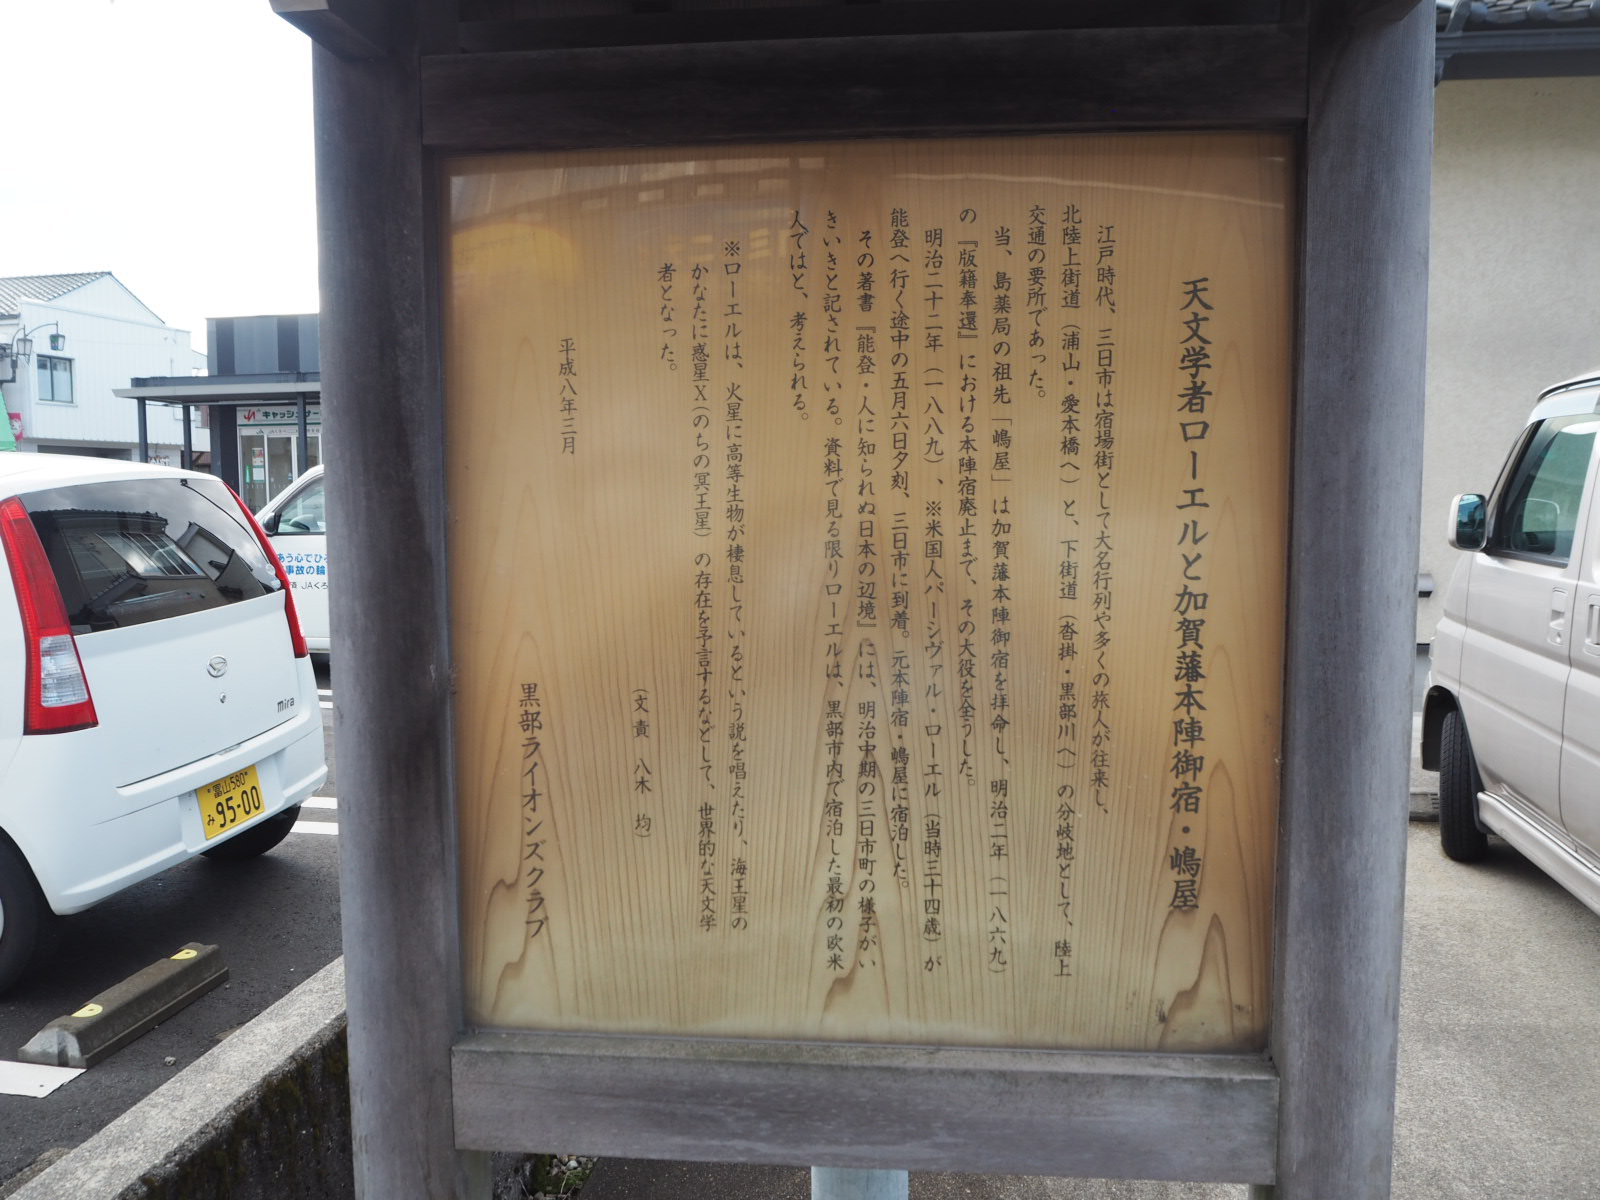 天文学者ローエルと加賀藩本陣御宿・嶋屋
江戸時代、三日市は宿場街として大名行列や多くの旅人が往来し、
北陸上街道（浦山・愛本橋へ）と、下街道（沓掛・黒部川へ）の分岐地として、陸上
交通の要所であった。
当、島薬局の祖先「嶋屋」は加賀藩本陣御宿を拝命し、明治二年（一八六九）
の『版籍奉還』における本陣宿廃止まで、その大役を全うした。
明治二十二年（一八八九）、※米国人パーシヴァル・ローエル（当時三十四歳）が
能登へ行く途中の五月六日夕刻、三日市に到着。元本陣宿・嶋屋に宿泊した。
その著書『能登・人に知られぬ日本の辺境』には、明治中期の三日市町の様子がい
きいきと記されている。資料で見る限りローエルは、黒部市内で宿泊した最初の欧米
人ではと、考えられる。
※ローエルは、火星に高等生物が棲息しているという説を唱えたり、海王星の
かなたに惑星X（のちの冥王星）の存在を予言するなどして、世界的な天文学
者となった。
（文責 八木 均）
平成八年三月
黒部ライオンズクラブ
キャッシュサー
あう心でひろ
事故の輪
JAくろ
mira
富山580
み 95-00